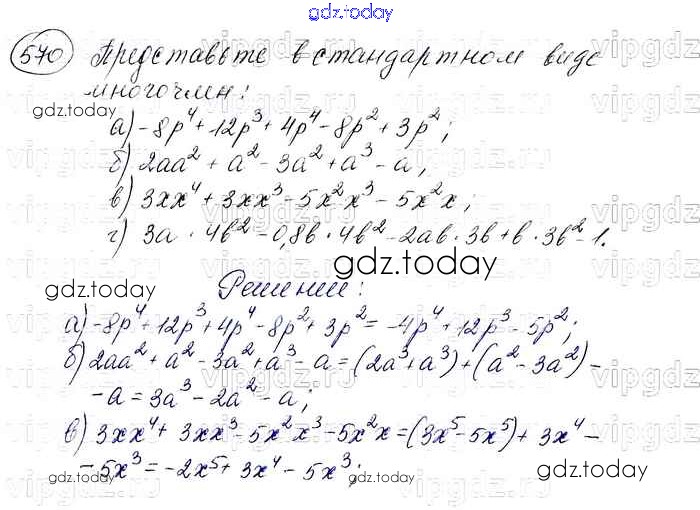 gdz.today
570 Представьте в стандартном виде
многочлен:
а) -8p⁴ + 12p³ + 4p⁴ - 8p² + 3p²;
gdz.today
б) 2aa² + a² - 3a² + a³ - a;
в) 3xx⁴ + 3xx³ - 5x²x³ - 5x²x;
г) 3a · 4b² - 0,8b · 4b² - 2ab · 3b + b · 3b² - 1.
gdz.today
gdz.today
Решение:
а) -8p⁴ + 12p³ + 4p⁴ - 8p² + 3p² = -4p⁴ + 12p³ - 5p²;
б) 2aa² + a² - 3a² + a³ - a = (2a³ + a³) + (a² - 3a²) -
- a = 3a³ - 2a² - a;
в) 3xx⁴ + 3xx³ - 5x²x³ - 5x²x = (3x⁵ - 5x⁵) + 3x⁴ -
- 5x³ = -2x⁵ + 3x⁴ - 5x³;
gdz.today
gdz.today